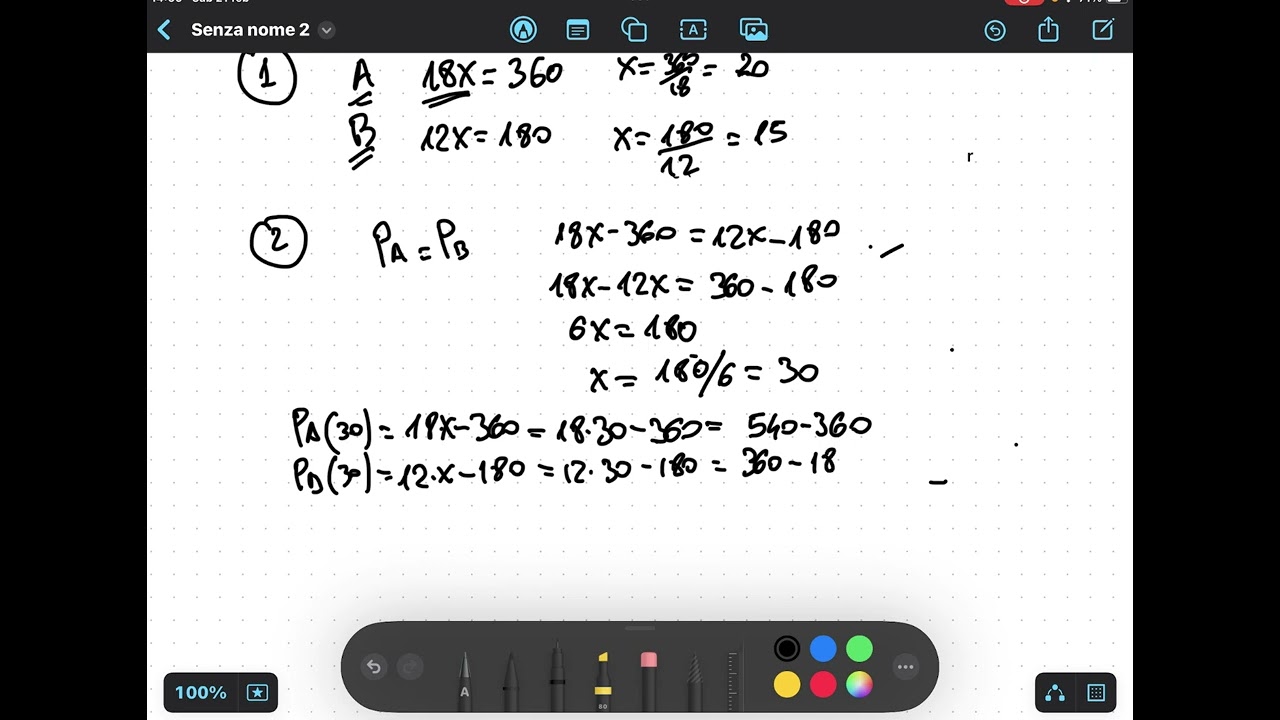 Senza nome 2
1 A 18x = 360 x = 360/18 = 20
B 12x = 180 x = 180/12 = 15
r
2 PA = PB 18x - 360 = 12x - 180
18x - 12x = 360 - 180
6x = 180
x = 180/6 = 30
PA(30) = 18x - 360 = 18·30 - 360 = 540 - 360
PB(30) = 12·x - 180 = 12·30 - 180 = 360 - 18
A
80
100%